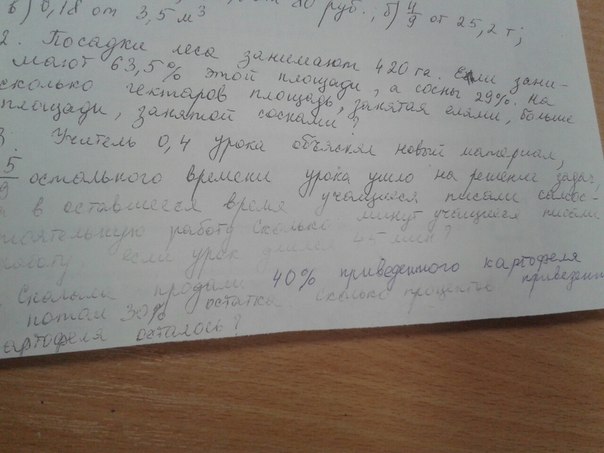 в) 0,18 от 3,5 м³ руб., б) 4/9 от 25,2 т;
2. Посадки леса занимают 420 га. Ели зани-
мают 63,5% этой площади, а сосны 29%. На
сколько гектаров площадь, занятая елями, больше
площади, занятой соснами?
3. Учитель 0,4 урока объяснял новый материал,
5/9 остального времени урока ушло на решение задач,
а в оставшееся время учащиеся писали самос-
тоятельную работу. Сколько минут учащиеся писали
работу если урок длился 45 мин?
Сначала продали 40% приведенного картофеля
потом 30% остатка. Сколько процентов
картофеля осталось?